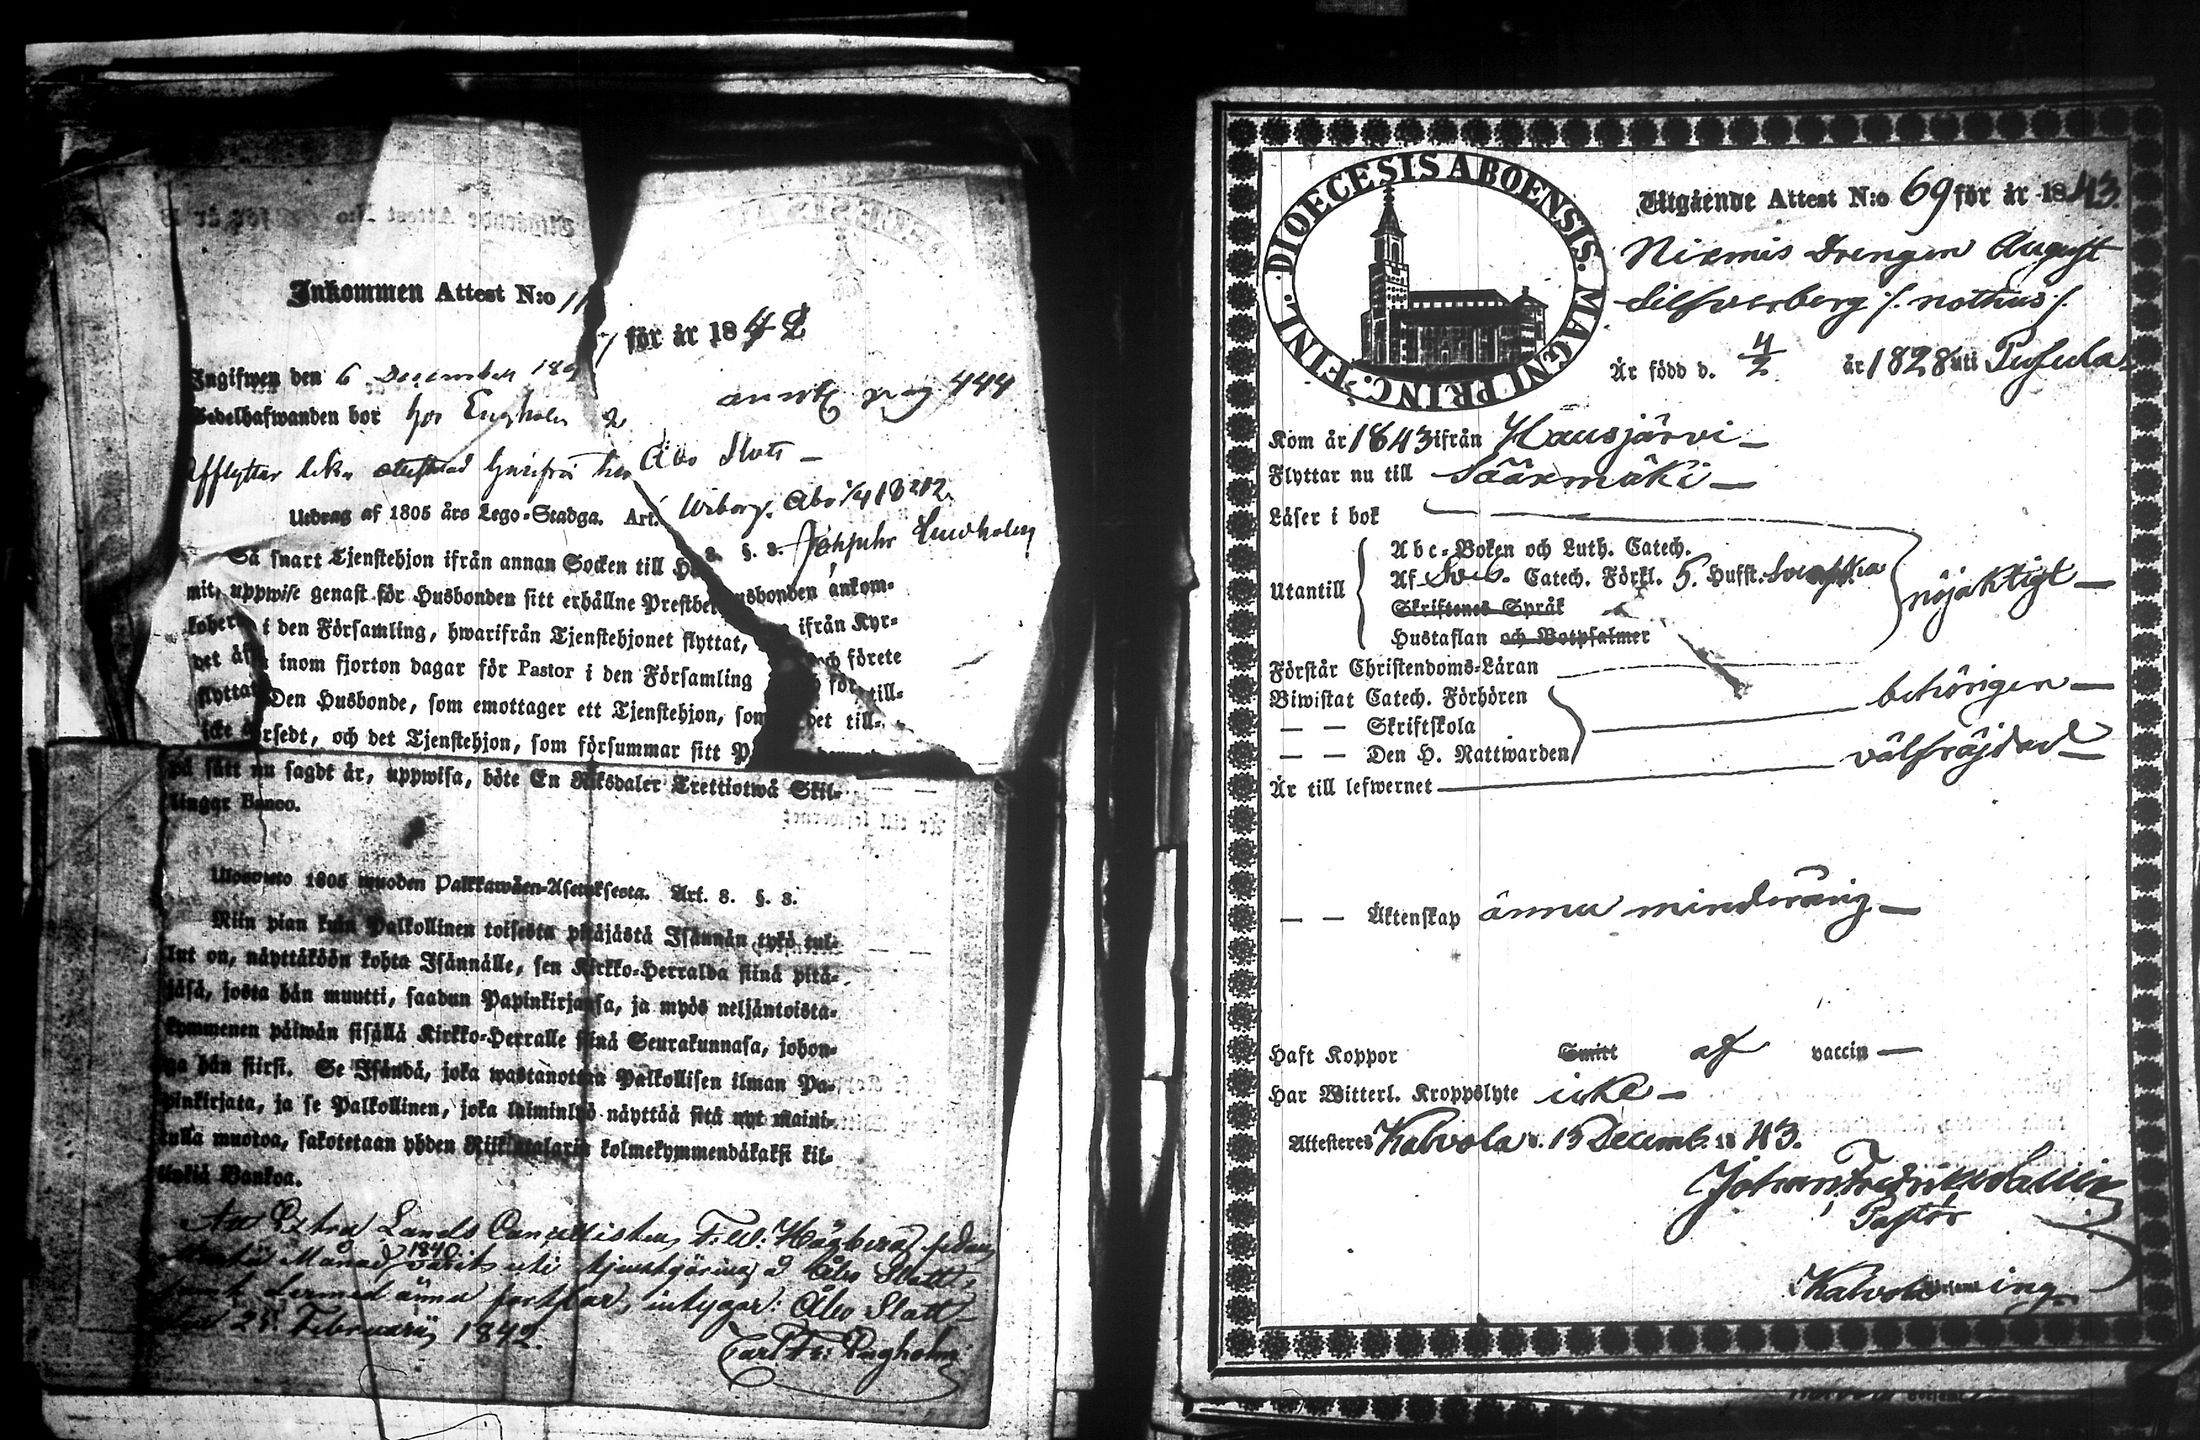 Inkommen Attest N:o 11
för år 184
Ingifwen den 6 December 18
annot pag 444
Bedelhafwanden bor hos Engholm
Åbo Slott —
Afflyttar
Wiborg. Åbo 1/4 1842
Utdrag af 1805 års Lego-Stadga. Art. 8. §. 8.
Lindholm
Så snart Tjenstehjon ifrån annan Socken till Husbonden ankom-
mit, uppwise genast för Husbonden sitt erhållne Prestbe
i den Församling, hwarifrån Tjenstehjonet flyttat, ifrån Kyr-
inom fjorton dagar för Pastor i den Församling och förete
flyttat Den Husbonde, som emottager ett Tjenstehjon, som det till-
icke försedt, och det Tjenstehjon, som försummar sitt
på sätt nu sagdt är, uppwisa, böte En Riksdaler Trettiotwå Skil-
lingar Banco.
Ulosweto 1805 wuoden Palkkawäen-Asetuksesta. Art. 8. §. 8.
Niin pian kuin Palkollinen toisesta pitäjästä Isännän tykö tul-
lut on, näyttäköön kohta Isännälle, sen Kirkko-Herralda siinä pitä-
jäsä, josta hän muutti, saadun Papinkirjansa, ja myös neljäntoista-
kymmenen päiwän sisällä Kirkko-Herralle siinä Seurakunnasa, johon-
ga hän siirsi. Se Isändä, joka wastanottaa Palkollisen ilman Pa-
pinkirjata, ja se Palkollinen, joka laiminlyö näyttää sitä nyt maini-
tulla muotoa, sakotetaan yhden Riiksdalarin kolmekymmendäkaksi kil-
lingiä Bankoa.
Att Extra Lands Cancellisten F. W. Högberg sedan
Månad 1840 varit uti tjenstgöring å Åbo Slott,
samt dermed ännu fortfar, intygar: Åbo Slott
den 25 Februarii 1842.
Carl Fr: Engholm
DIOECESIS ABOENSIS. MAGNI PRINC. FINL.
Utgående Attest N:o 69 för år 1843.
Niemis Drengen August
Silfverberg /: nothus :/
Är född d. 4/2 år 1828 uti Pusula
Kom år 1843 ifrån Hausjärvi —
Flyttar nu till Sääxmäki —
Läser i bok
Utantill
Abc-Boken och Luth. Catech.
Af Sveb. Catech. Förkl. 5. Hufst. Svenska
Skriftenes Språk
nöjaktigt —
Hustaflan och Botpsalmer
Förstår Christendoms-Läran
Biwistat Catech. Förhören
behörigen —
— — Skriftskola
— — Den H. Nattwarden
Är till lefwernet — välfräjdad —
— — Äktenskap ännu minderårig —
Haft Koppor Smitt af vaccin —
Har Witterl. Kroppslyte icke —
Attesteras Kalvola d. 15 Decemb. 1843.
Johan Fredrik
Pastor
Kalvola Församling